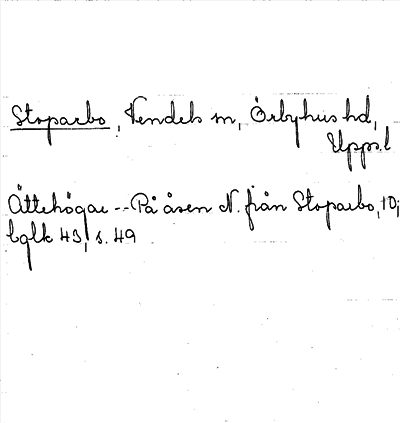 Stoparbo, Vendels sn, Örbyhus hd,
Upps.l
Ättehögar -- På åsen N. från Stoparbo, 10;
bglk 43, s. 49